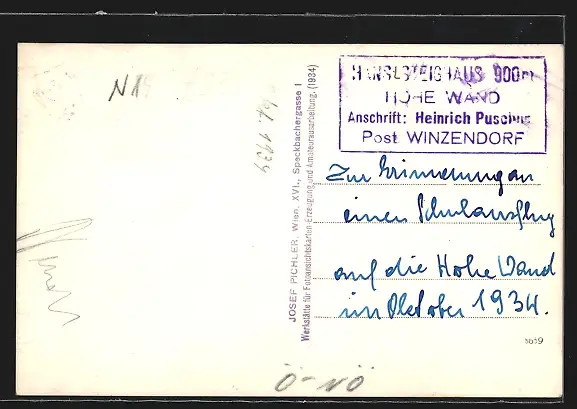 HANSLSTEIGHAUS 900m
HOHE WAND
Anschrift: Heinrich
Post WINZENDORF
Zur Erinnerung an
einen Schulausflug
auf die Hohe Wand
im Oktober 1934.
JOSEF PICHLER, Wien, XVI., Speckbachergasse 1
Werkstätte für Fotoansichtskarten Erzeugung und Amateurausarbeitung. (1934)
1934
Ö-NÖ